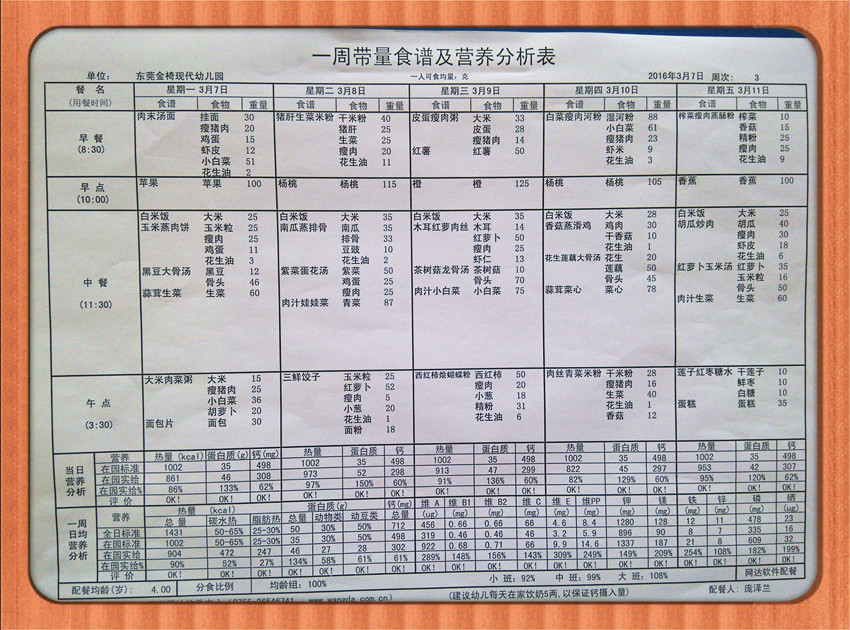 一周带量食谱及营养分析表
单位: 东莞金椅现代幼儿园 一人可食均量: 克 2016年3月7日 周次: 3
餐 名 星期一 3月7日 星期二 3月8日 星期三 3月9日 星期四 3月10日 星期五 3月11日
(用餐时间) 食谱 食物 重量 食谱 食物 重量 食谱 食物 重量 食谱 食物 重量 食谱 食物 重量
早 餐 (8:30)
肉末汤面 挂面 30 猪肝生菜米粉 干米粉 40 皮蛋瘦肉粥 大米 33 白菜瘦肉河粉 湿河粉 88 榨菜瘦肉蒸肠粉 榨菜 10
瘦猪肉 20 猪肝 25 皮蛋 28 小白菜 61 香菇 15
鸡蛋 15 生菜 25 瘦猪肉 14 瘦猪肉 23 精粉 25
虾皮 12 瘦肉 20 红薯 红薯 50 虾米 9 瘦肉 25
小白菜 51 花生油 11 花生油 3 花生油 9
花生油 2
早 点 (10:00)
苹果 苹果 100 杨桃 杨桃 115 橙 橙 125 杨桃 杨桃 105 香蕉 香蕉 100
中 餐 (11:30)
白米饭 大米 25 白米饭 大米 35 白米饭 大米 35 白米饭 大米 28 白米饭 大米 25
玉米蒸肉饼 玉米粒 25 南瓜蒸排骨 南瓜 35 木耳红萝肉丝 木耳 14 香菇蒸滑鸡 鸡肉 30 胡瓜炒肉 胡瓜 40
瘦肉 25 排骨 33 红萝卜 50 干香菇 10 瘦肉 30
鸡蛋 11 豆豉 10 瘦肉 25 花生油 1 虾皮 18
花生油 3 花生油 2 虾仁 13 花生莲藕大骨汤 花生 20 花生油 6
黑豆大骨汤 黑豆 12 紫菜蛋花汤 紫菜 50 茶树菇龙骨汤 茶树菇 10 莲藕 50 红萝卜玉米汤 红萝卜 35
骨头 46 鸡蛋 25 骨头 70 骨头 45 玉米粒 16
蒜茸生菜 生菜 60 瘦肉 25 肉汁小白菜 小白菜 75 蒜茸菜心 菜心 78 骨头 50
肉汁娃娃菜 青菜 87 肉汁生菜 生菜 60
午 点 (3:30)
大米肉菜粥 大米 15 三鲜饺子 玉米粒 25 西红柿烩蝴蝶粉 西红柿 50 肉丝青菜米粉 干米粉 28 莲子红枣糖水 干莲子 10
瘦猪肉 25 红萝卜 52 瘦肉 20 瘦猪肉 16 鲜枣 10
小白菜 36 瘦肉 5 小葱 18 生菜 40 白糖 10
胡萝卜 20 小葱 20 精粉 31 花生油 1 蛋糕 蛋糕 35
面包片 面包 30 花生油 1 花生油 6 香菇 12
面粉 18
当日营养分析
营养 热量(kcal) 蛋白质(g) 钙(mg) 热量 蛋白质 钙 热量 蛋白质 钙 热量 蛋白质 钙 热量 蛋白质 钙
在园标准 1002 35 498 1002 35 498 1002 35 498 1002 35 498 1002 35 498
在园实给 861 46 308 973 52 298 913 47 299 822 45 297 953 42 307
在园实给% 86% 133% 62% 97% 150% 60% 91% 136% 60% 82% 129% 60% 95% 120% 62%
评 价 OK! OK! OK! OK! OK! OK! OK! OK! OK! OK! OK! OK! OK! OK! OK!
一周日均营养分析
营养 热量 (kcal) 蛋白质(g) 钙(mg) 维 A 维 B1 维 B2 维 C 维 E 维PP 钾 镁 铁 锌 磷 硒
总 量 碳水热 脂肪热 总量 动物类 动豆类 总量 (ug) (mg) (mg) (mg) (mg) (mg) (mg) (mg) (mg) (mg) (mg) (ug)
全日标准 1431 50-65% 25-30% 50 30% 50% 712 456 0.66 0.66 66 4.6 8.4 1280 128 12 11 478 23
在园标准 1002 50-65% 25-30% 35 30% 50% 498 319 0.46 0.46 46 3.2 5.9 896 90 8 7 335 16
在园实给 904 472 247 46 27 28 302 922 0.68 0.71 66 9.9 14.6 1337 187 21 8 609 32
在园实给% 90% 52% 27% 134% 58% 61% 61% 289% 148% 156% 143% 309% 249% 149% 209% 254% 108% 182% 199%
评 价 OK! OK! OK! OK! OK! OK! OK! OK! OK! OK! OK! OK! OK! OK! OK! OK! OK! OK! OK!
配餐均龄(岁): 4.00 分食比例 均龄组: 100% 小 班: 92% 中 班: 99% 大 班: 108% 网达软件配餐
www.wangda.com.cn) (建议幼儿每天在家饮奶5两,以保证钙摄入量) 配餐人: 庞泽兰